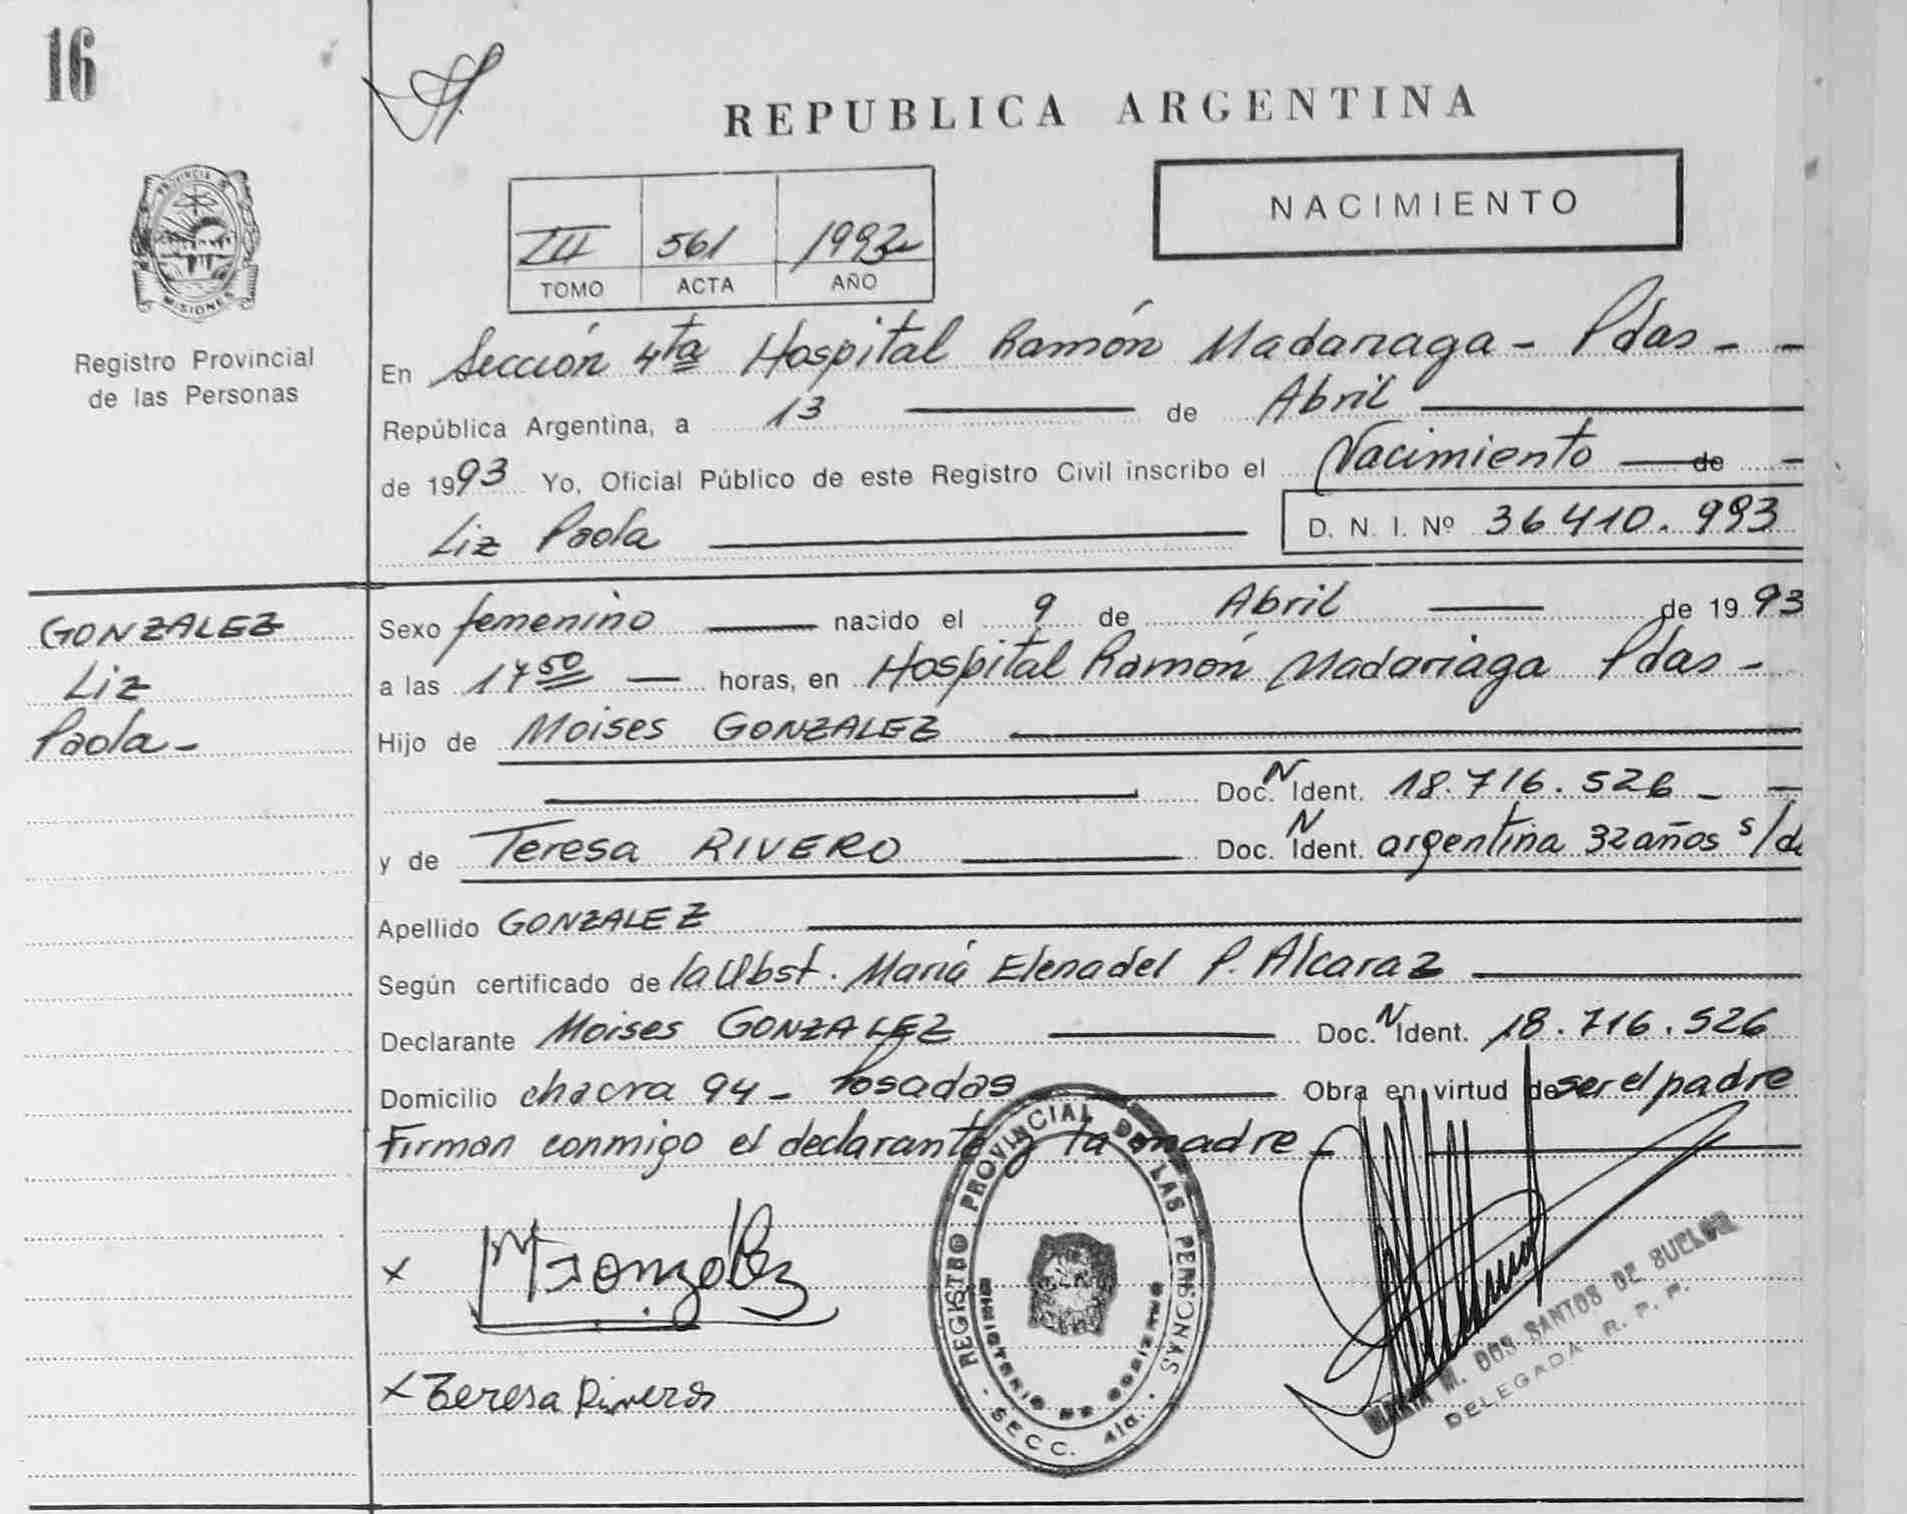 16
REPUBLICA ARGENTINA
NACIMIENTO
III 561 1992
TOMO ACTA AÑO
PROVINCIA DE
MISIONES
Registro Provincial
de las Personas
En Sección 4ta Hospital Ramón Madariaga - Pdas - -
República Argentina, a 13 de Abril
de 1993 Yo, Oficial Público de este Registro Civil inscribo el Nacimiento de -
Liz Paola D. N. I. Nº 36410.993
GONZALEZ
Liz
Paola -
Sexo femenino nacido el 9 de Abril de 1993
a las 17 50 horas, en Hospital Ramón Madariaga Pdas -
Hijo de Moises GONZALEZ
Doc. N Ident. 18.716.526 - -
y de Teresa RIVERO Doc. N Ident. argentina 32 años s/d
Apellido GONZALEZ
Según certificado de la Obst. María Elena del P. Alcaraz
Declarante Moises GONZALEZ Doc. N Ident. 18.716.526
Domicilio chacra 94 - Posadas Obra en virtud de ser el padre
Firman conmigo el declarante y la madre -
x MGonzalez
x Teresa Riveros
REGISTRO PROVINCIAL DE LAS PERSONAS
MINISTERIO DE GOBIERNO
SECC. 4ta.
M. DOS SANTOS DE
DELEGADA R. P. P.